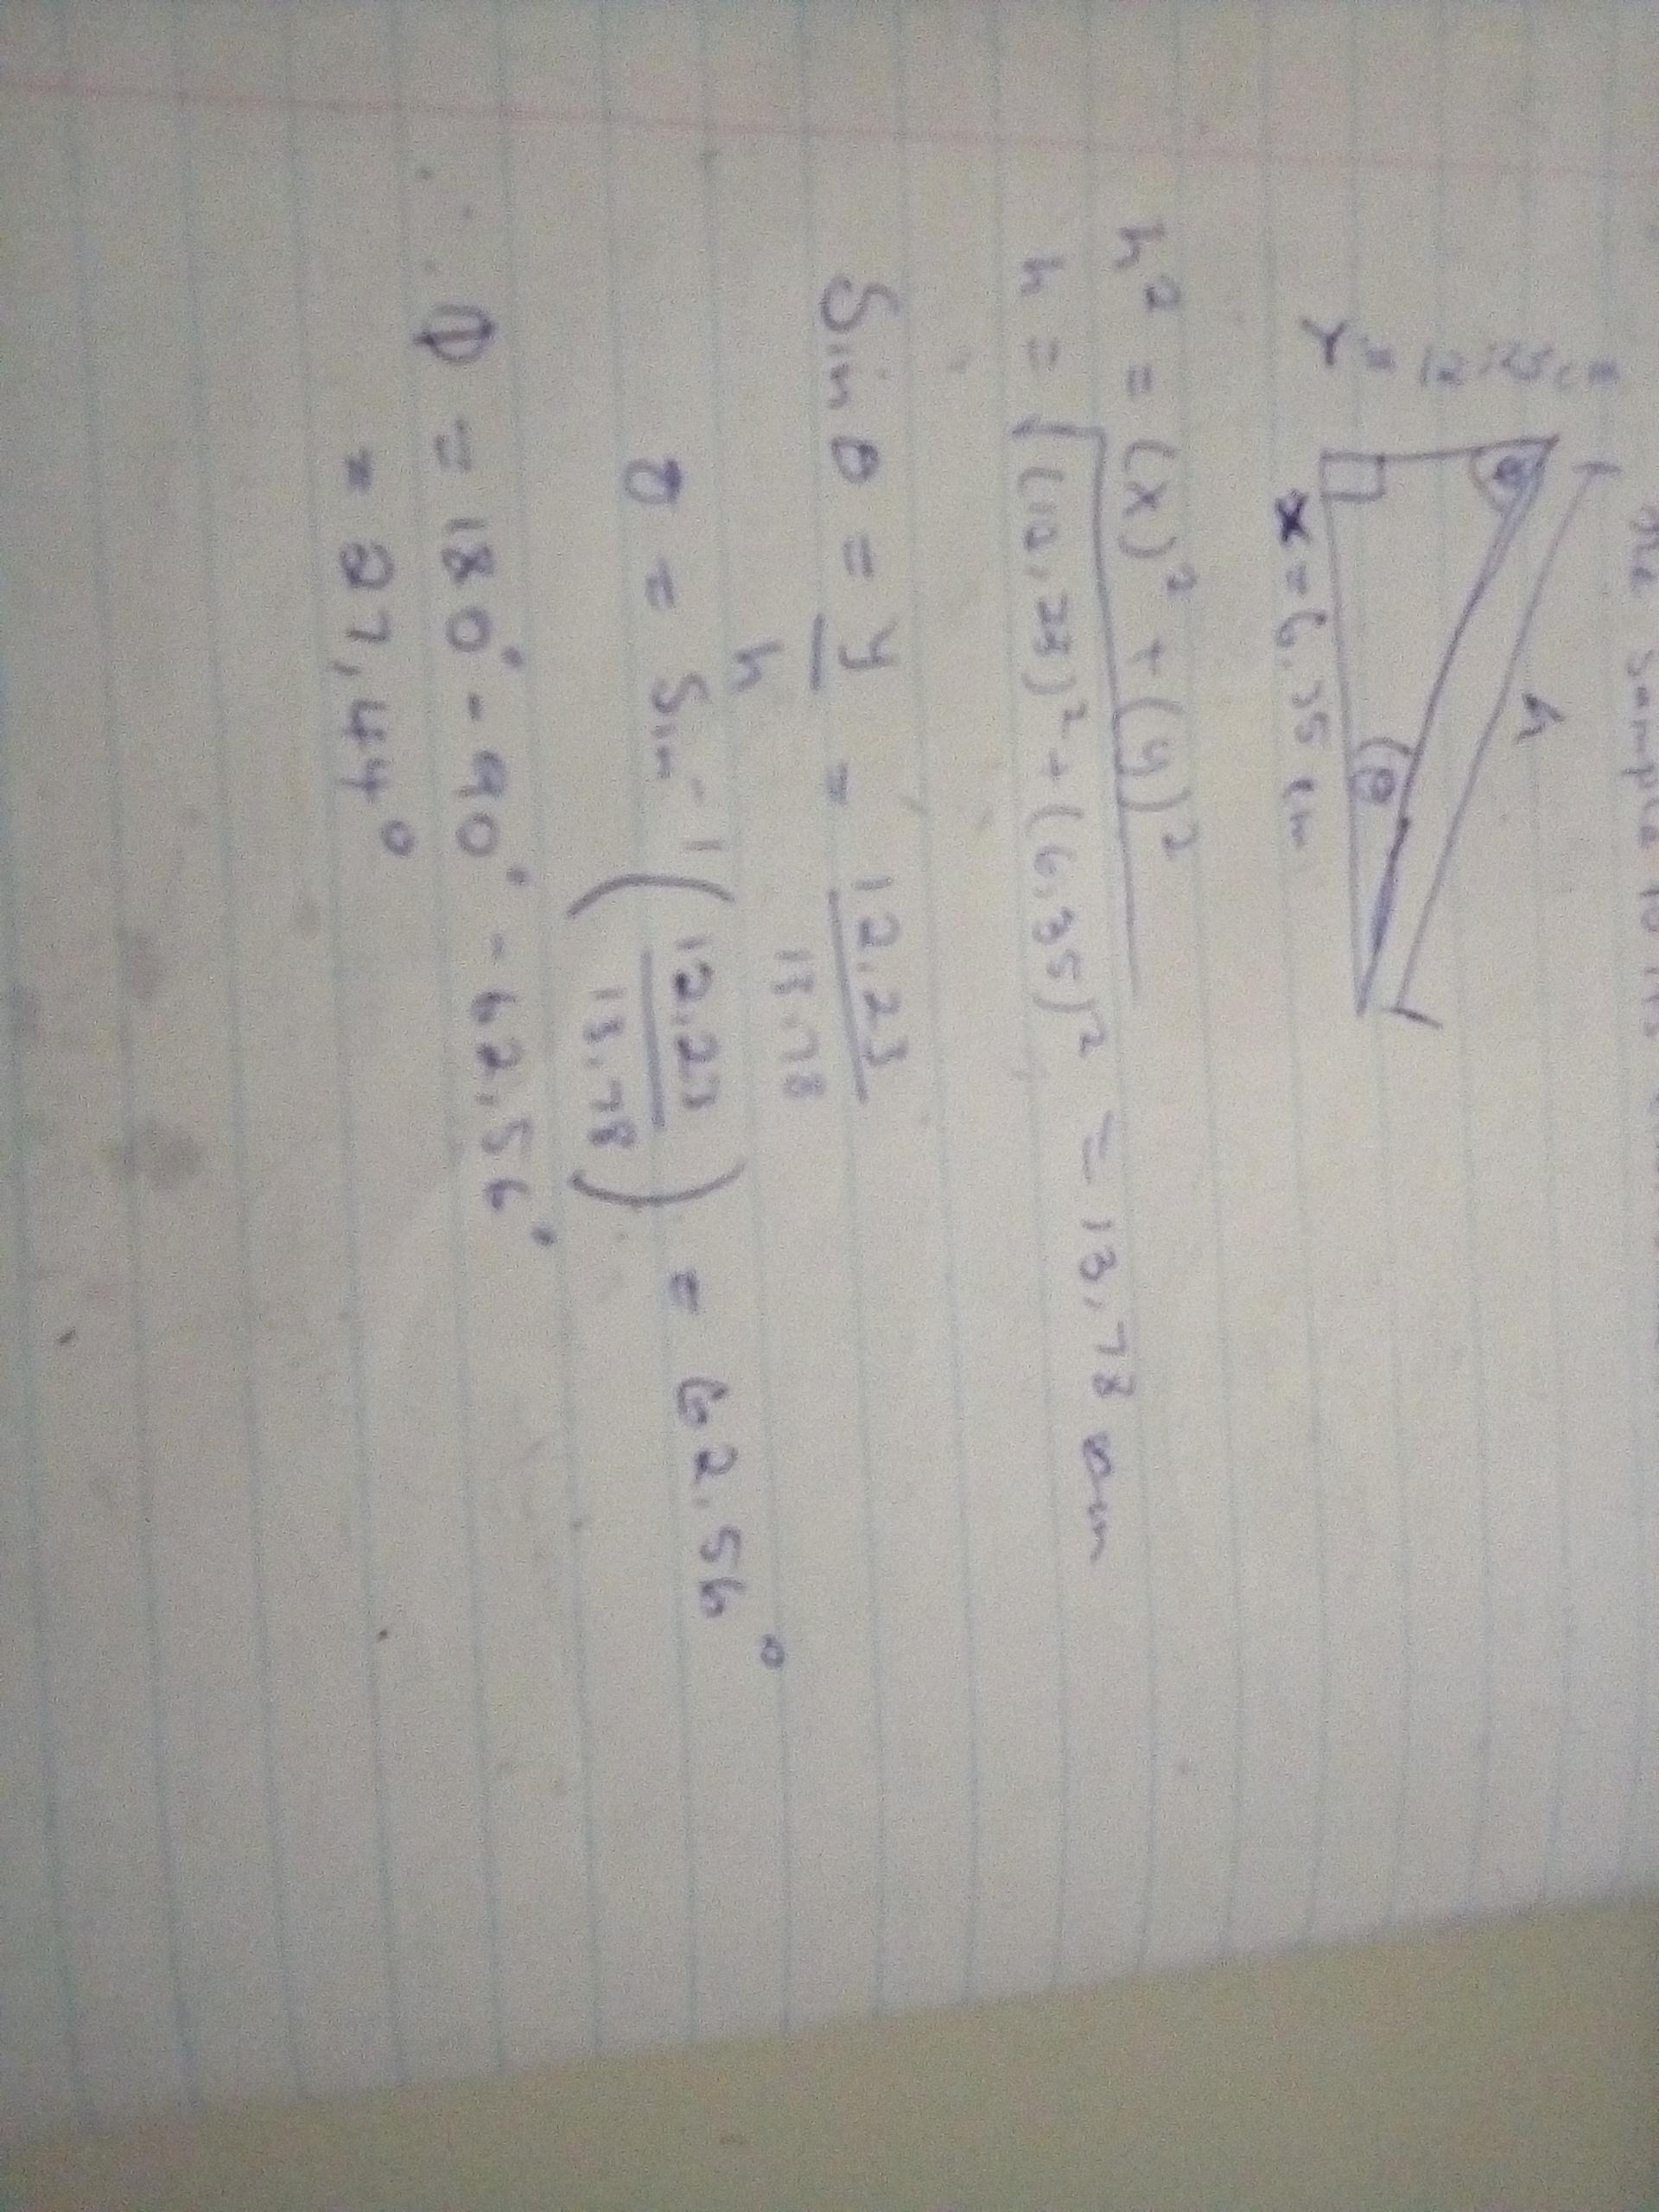 the sample to its
h
Y = 12,23 cm
θ
x = 6,35 cm
h² = (x)² + (y)²
h = √(12,23)² + (6,35)² = 13,78 mm
Sin θ = y/h = 12,23/13,78
θ = Sin⁻¹ (12,23/13,78) = 62,56°
Φ = 180° - 90° - 62,56°
= 27,44°